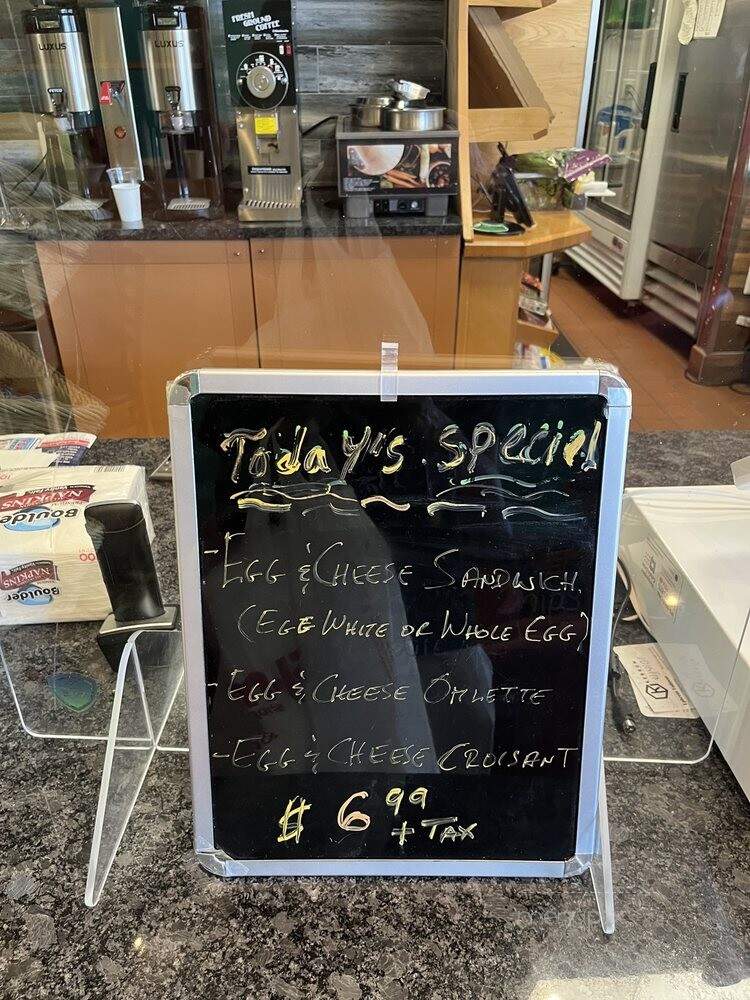 LUXUS
LUXUS
FETCO
FRESH
GROUND
COFFEE
Today's special
- EGG & CHEESE SANDWICH.
(EGG WHITE OR WHOLE EGG)
- EGG & CHEESE OMLETTE
- EGG & CHEESE CROISANT
$ 6 99
+ TAX
NAPKINS
Boulder
NAPKINS
Boulder